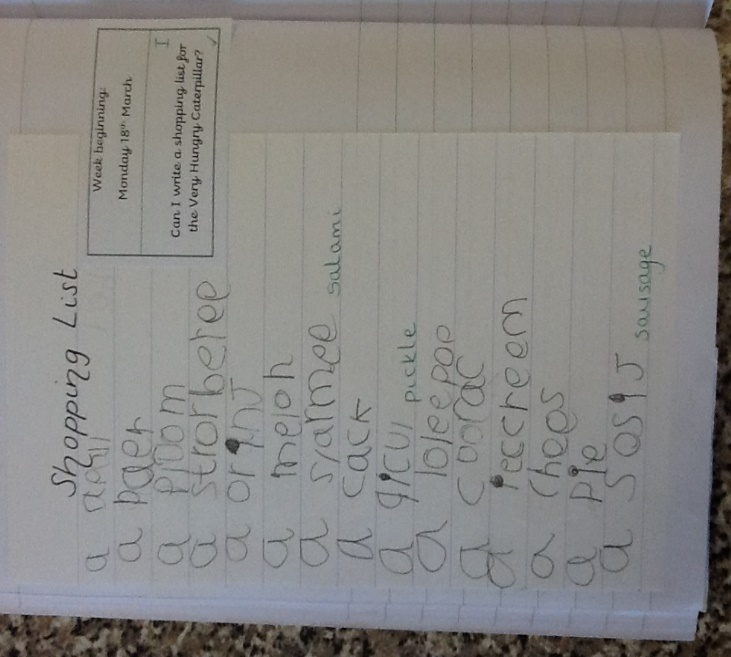 Week beginning:
Monday 18th March
I
Can I write a shopping list for
the Very Hungry Caterpillar?
Shopping List
a
a paer
a ploom
a strorberee
a orinJ
a meloh
a slarmee salami
a cack
a qicul pickle
a loleepop
a
a ieecreem
a chees
a pie
a sosij sausage